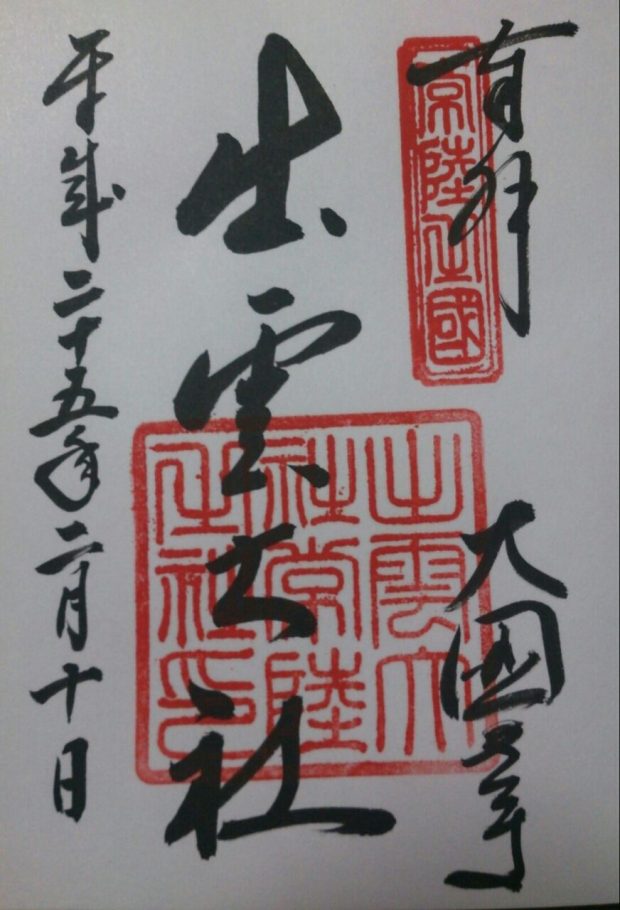 奉拝
常陸之國
大國
出雲大社
出雲大
社常陸
之社印
平成二十五年二月十日